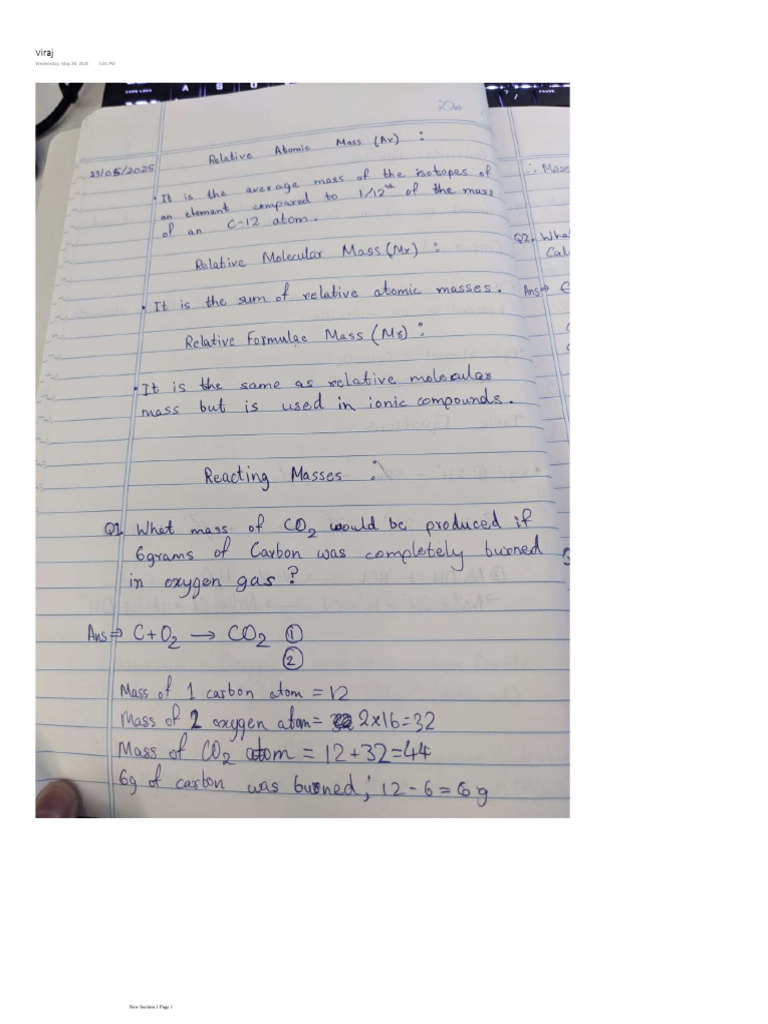 Viraj
Wednesday, May 28, 2025 5:05 PM
A S D
PAUSE
Relative Atomic Mass (Ar) :
23/05/2025
• It is the average mass of the isotopes of
an element compared to 1/12th of the mass
of an C-12 atom.
Relative Molecular Mass (Mr) :
• It is the sum of relative atomic masses.
Relative Formulae Mass (Mr) :
• It is the same as relative molecular
mass but is used in ionic compounds.
Reacting Masses :
Q1. What mass of CO2 would be produced if
6grams of Carbon was completely burned
in oxygen gas?
Ans⇒ C+O2 → CO2 ①
②
Mass of 1 carbon atom = 12
Mass of 2 oxygen atom= 2x16=32
Mass of CO2 atom = 12+32=44
6g of carbon was burned; 12-6=6g
∴ Mass
Q2. What
Cal
Ans⇒
New Section 1 Page 1